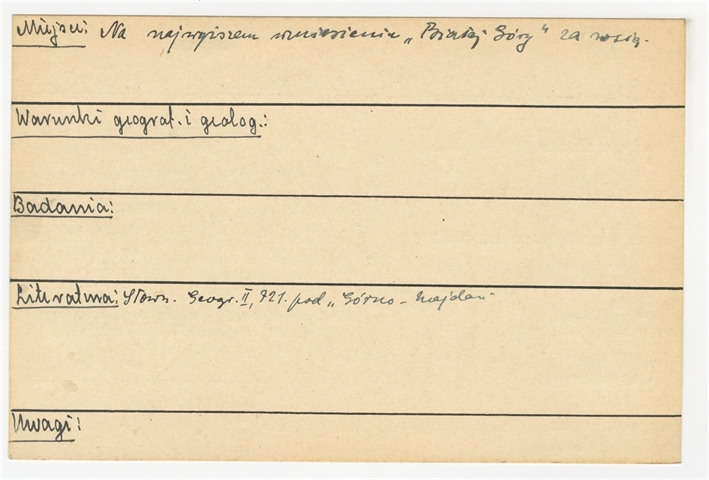 Miejsce: Na najwyższem wzniesieniu „Białej Góry" za wsią.
Warunki geograf. i geolog.:
Badania:
Literatura: Słown. Geogr. II, 721. pod „Górno-Majdan"
Uwagi: